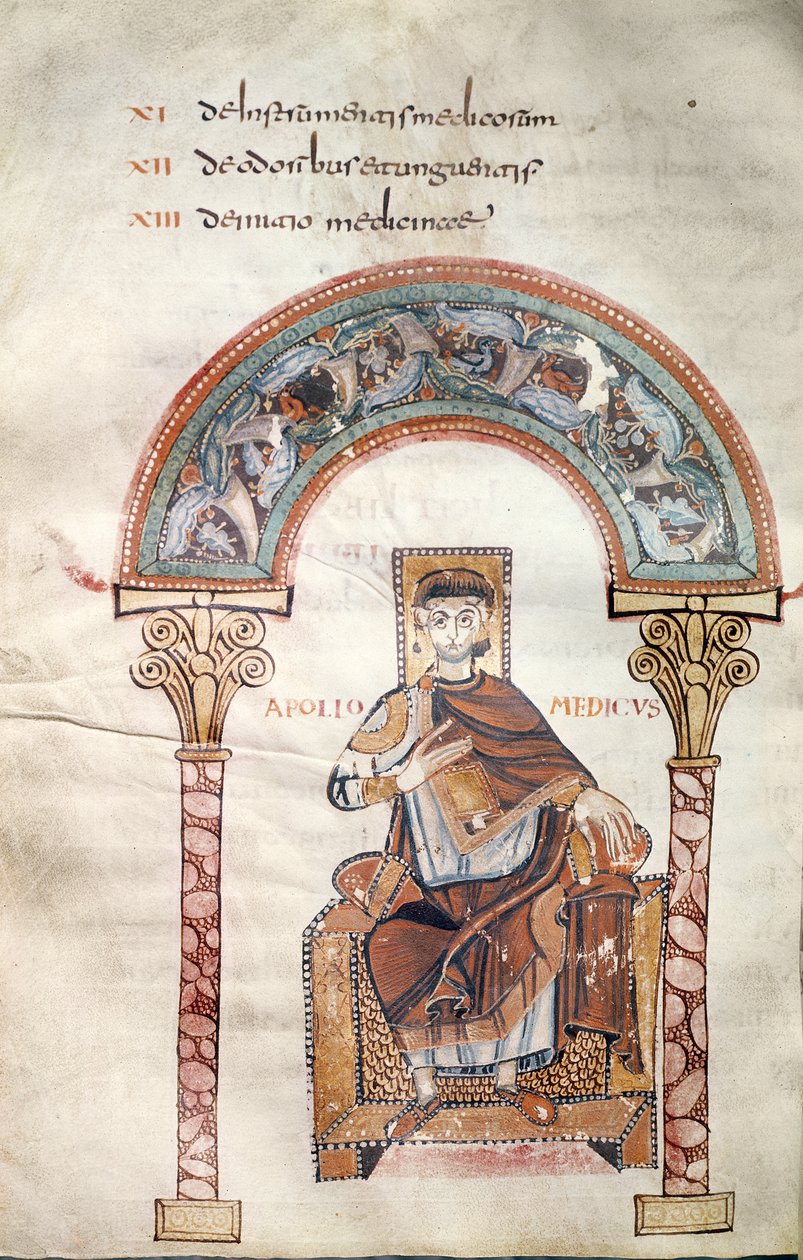 XI deInstrumentis medicorum
XII de odoribus et unguentis
XIII de initio medicinae
APOLLO MEDICVS